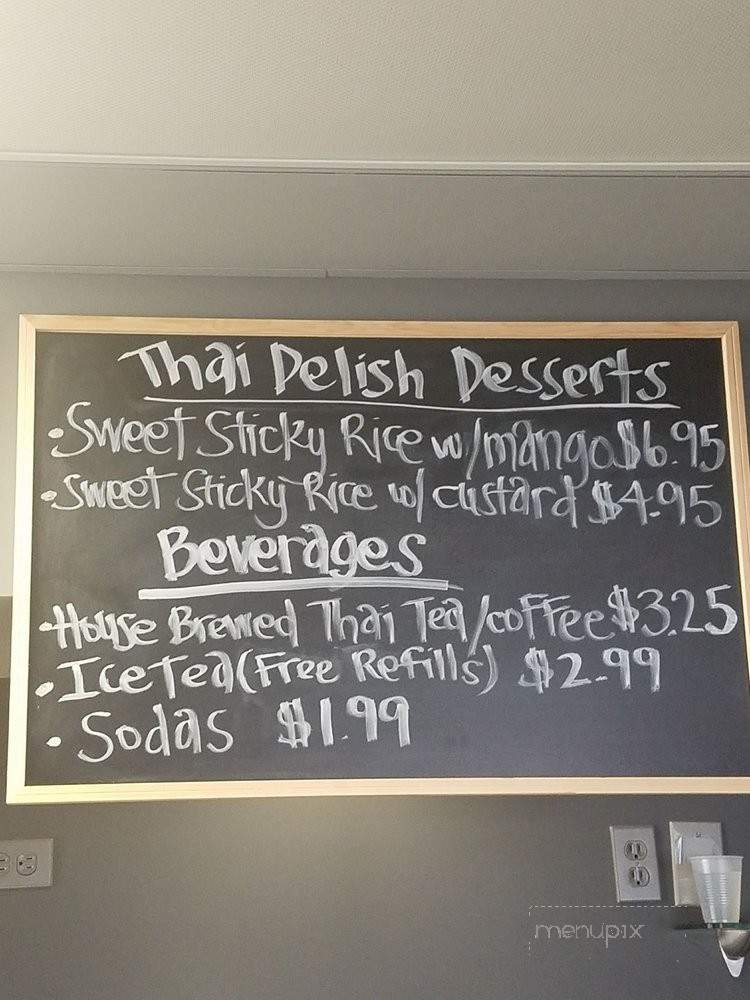 Thai Delish Desserts
• Sweet Sticky Rice w/mango $6.95
• Sweet Sticky Rice w/ custard $4.95
Beverages
• House Brewed Thai Tea/coffee $3.25
• Ice Tea (Free Refills) $2.99
• Sodas $1.99
menupix